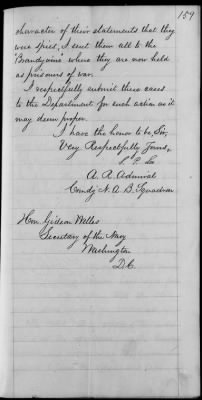 159
character of their statements that they
were spies, I sent them all to the
"Brandywine" where they are now held
as prisoners of war.
I respectfully submit these cases
to the Department for such action as it
may deem proper.
I have the honor to be, Sir,
Very Respectfully Yours,
S. P. Lee
A. R. Admiral
Comdg N. A. B. Squadron
Hon. Gideon Welles
Secretary of the Navy
Washington
D.C.